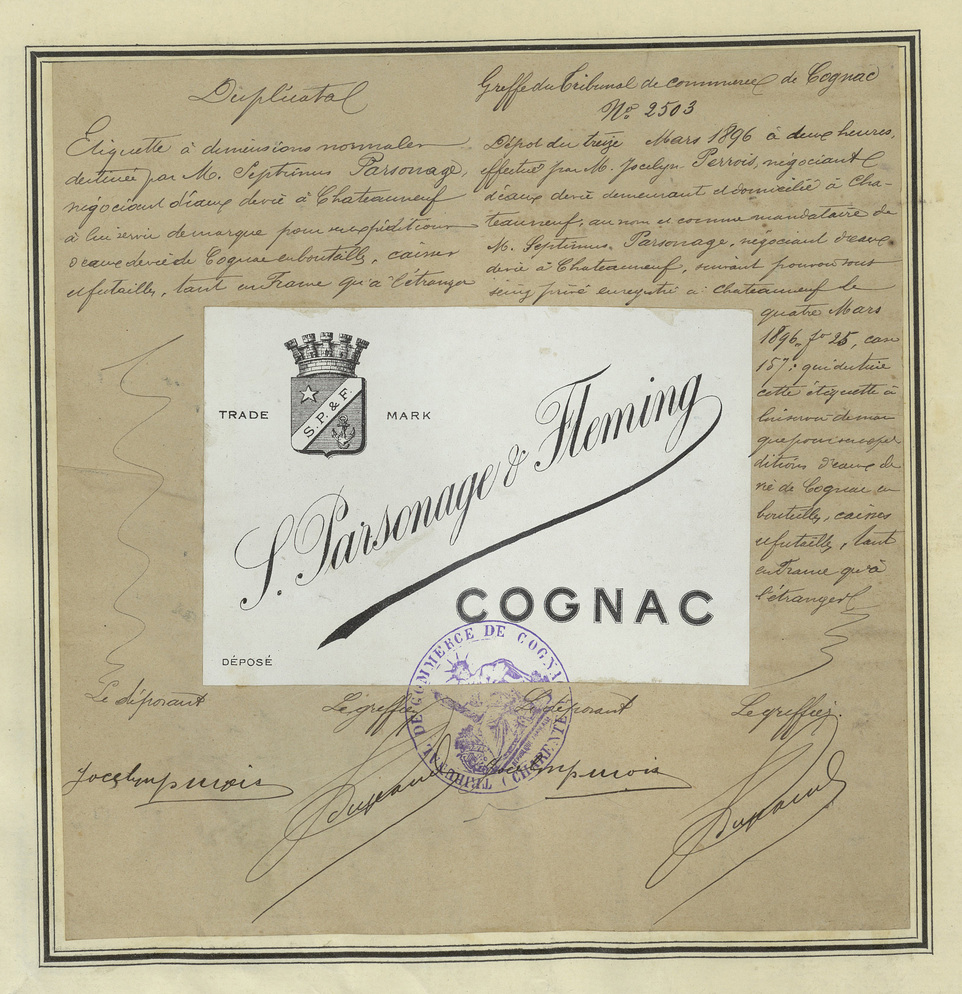 Duplicata
Etiquette à dimensions normales
destinée par M. Septimus Parsonage,
négociant d'eaux devie à Chateauneuf
à lui servir demarque pour ses expéditions
d'eaux devie de Cognac en bouteilles, caisses
et futailles, tant en France qu'à l'étranger
Greffe du Tribunal de commerce de Cognac
No 2503
Dépot du treize Mars 1896 à deux heures,
effectué par M. Jocelyn Perrois, négociant
d'eaux devie demeurant et domicilié à Cha-
teauneuf, au nom et comme mandataire de
M. Septimus Parsonage, négociant d'eaux
devie à Chateauneuf, suivant pouvoir sous
seing privé enregistré à Chateauneuf le
quatre Mars
1896, fo 25, case
157: qui destine
cette étiquette à
lui servir de mar
que pour ses expé
ditions d'eaux de
vie de Cognac en
bouteilles, caisses
et futailles, tant
en France qu'à
l'étranger
TRADE MARK
S.P. & F.
S. Parsonage & Fleming
COGNAC
DÉPOSÉ
TRIBUNAL DE COMMERCE DE COGNAC (CHARENTE)
Le déposant Le greffier Le déposant Le greffier.